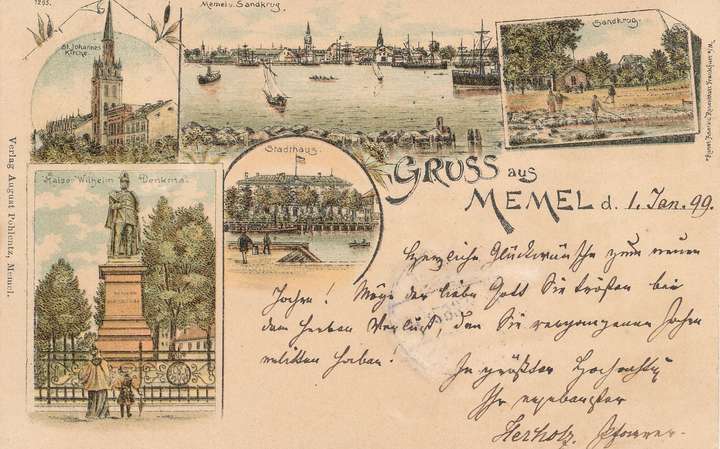 1293.
St. Johannes
Kirche
Memel v. Sandkrug
Sandkrug.
Kaiser Wilhelm Denkmal
Stadthaus
Verlag August Pohlentz, Memel.
GRUSS aus
MEMEL d. 1. Jan. 99.
Herzliche Glückwünsche zum neuen
Jahre! Möge der liebe Gott Sie trösten bei
dem herben Verlust, den Sie vergangenen Jahre
erlitten haben!
In größter Hochachtg
Ihr ergebenster
Herholz, Pfarrer.